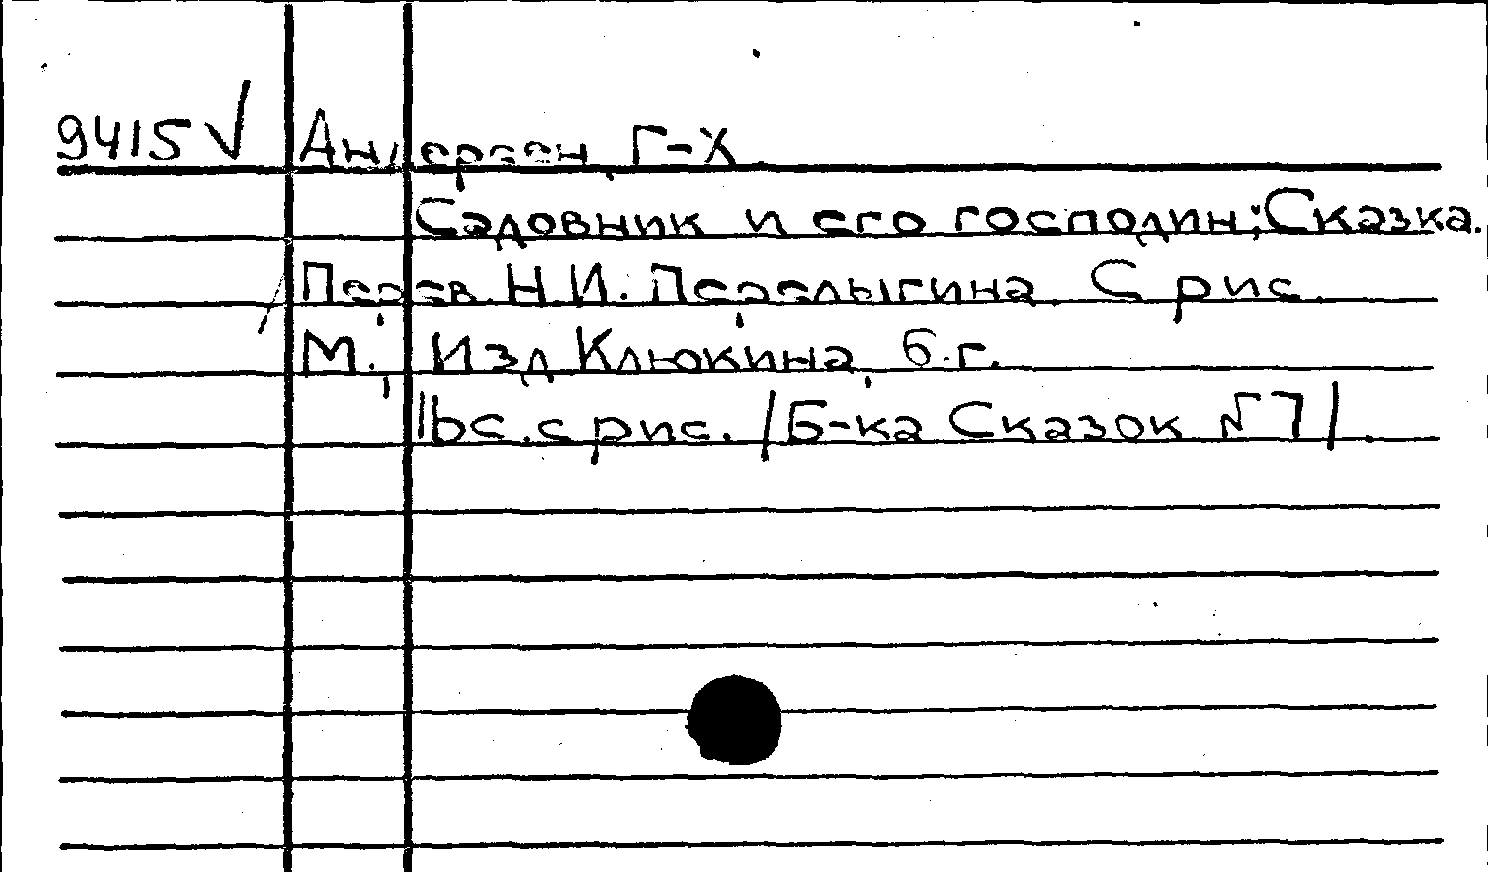 9415 √ Андерсен, Г-Х
Садовник и его господин; Сказка.
Перев. Н.И. Перелыгина. С рис.
М., Изд. Клюкина, б.г.
16с. с рис. /Б-ка Сказок №7/.